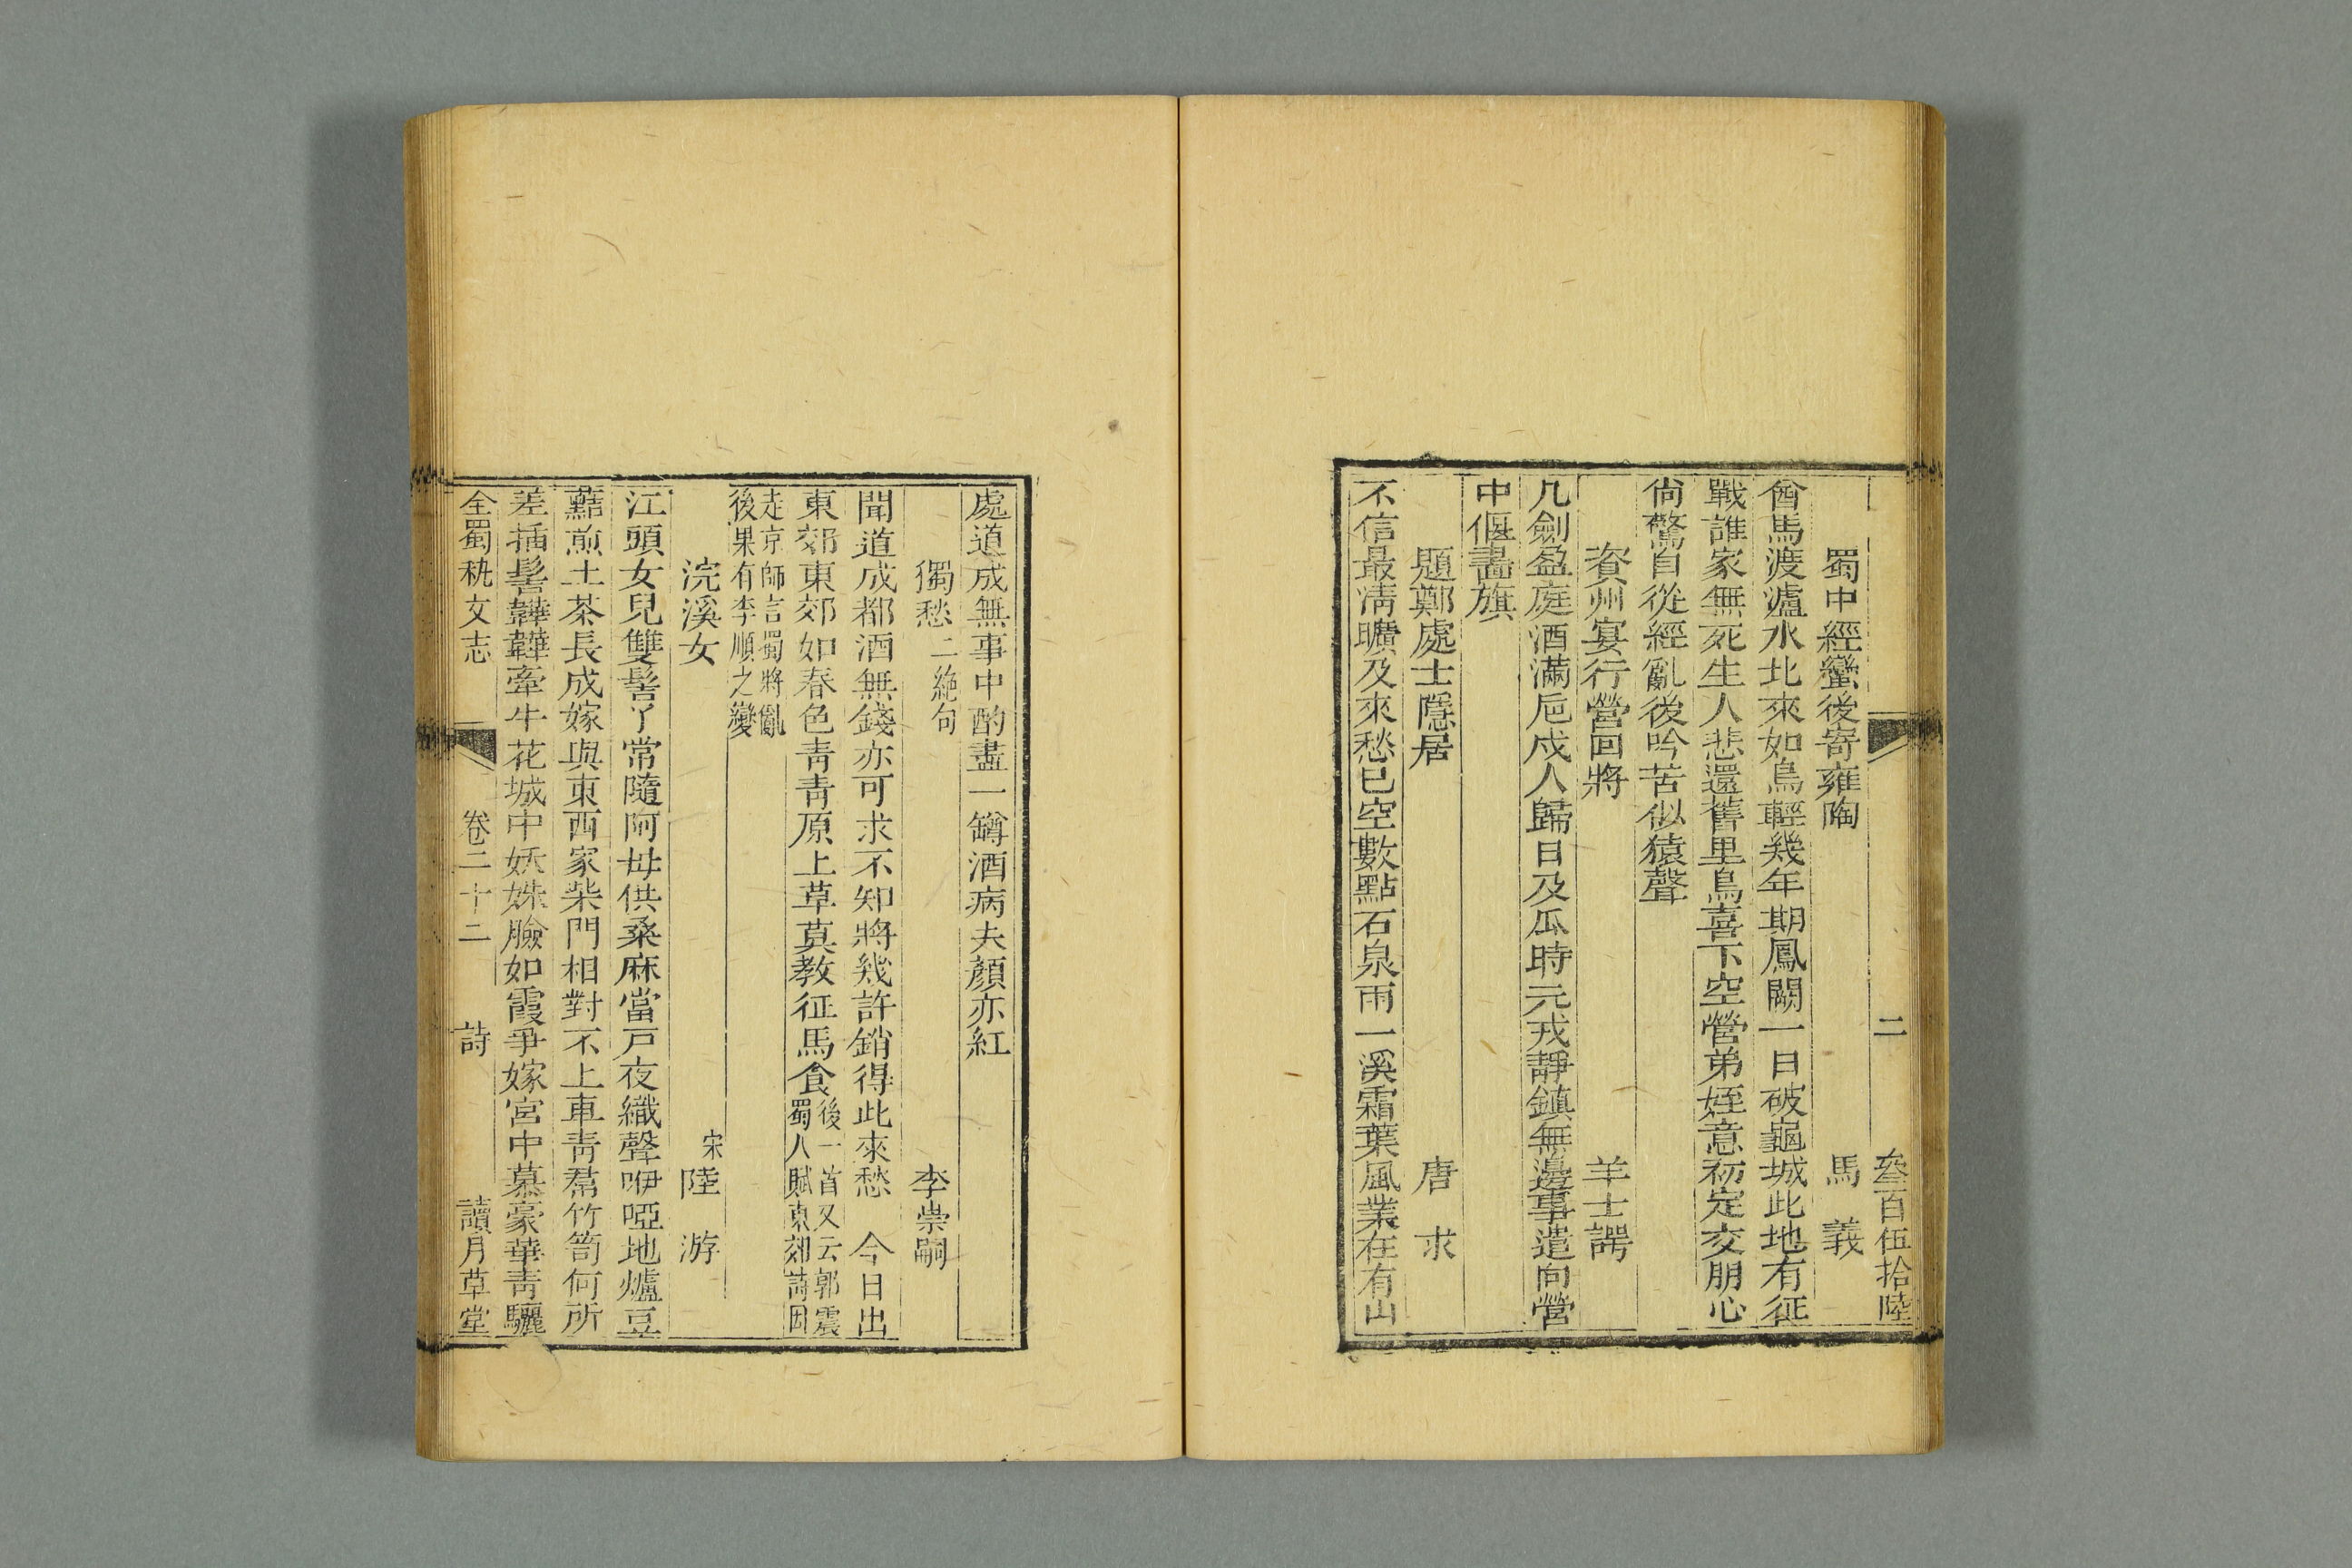 二 叄百伍拾陸
蜀中經蠻後寄雍陶 馬義
酋馬渡瀘水北來如鳥輕幾年期鳳闕一日破龜城此地有征
戰誰家無死生人悲還舊里鳥喜下空營弟姪意初定交朋心
尚驚自從經亂後吟苦似猿聲
資州宴行營回將 羊士諤
几劍盈庭酒滿卮戍人歸日及瓜時元戎靜鎮無邊事遣向營
中偃畵旗
題鄭處士隱居 唐求
不信最淸曠及來愁已空數點石泉雨一溪霜葉風業在有山
處道成無事中酌盡一罇酒病夫顏亦紅
獨愁二絶句 李崇嗣
聞道成都酒無錢亦可求不知將幾許銷得此來愁 今日出
東郊東郊如春色靑靑原上草莫教征馬食
後一首又云郭震
蜀人賦東郊詩因
走京師言蜀將亂
後果有李順之變
浣溪女 宋陸游
江頭女兒雙髻丫常隨阿母供桑麻當戸夜織聲咿啞地爐豆
䕸煎土茶長成嫁與東西家柴門相對不上車靑裠竹笥何所
差插髻韡韡牽牛花城中妖姝臉如霞爭嫁宮中慕豪華靑驪
全蜀秇文志 卷二十二 詩 讀月草堂